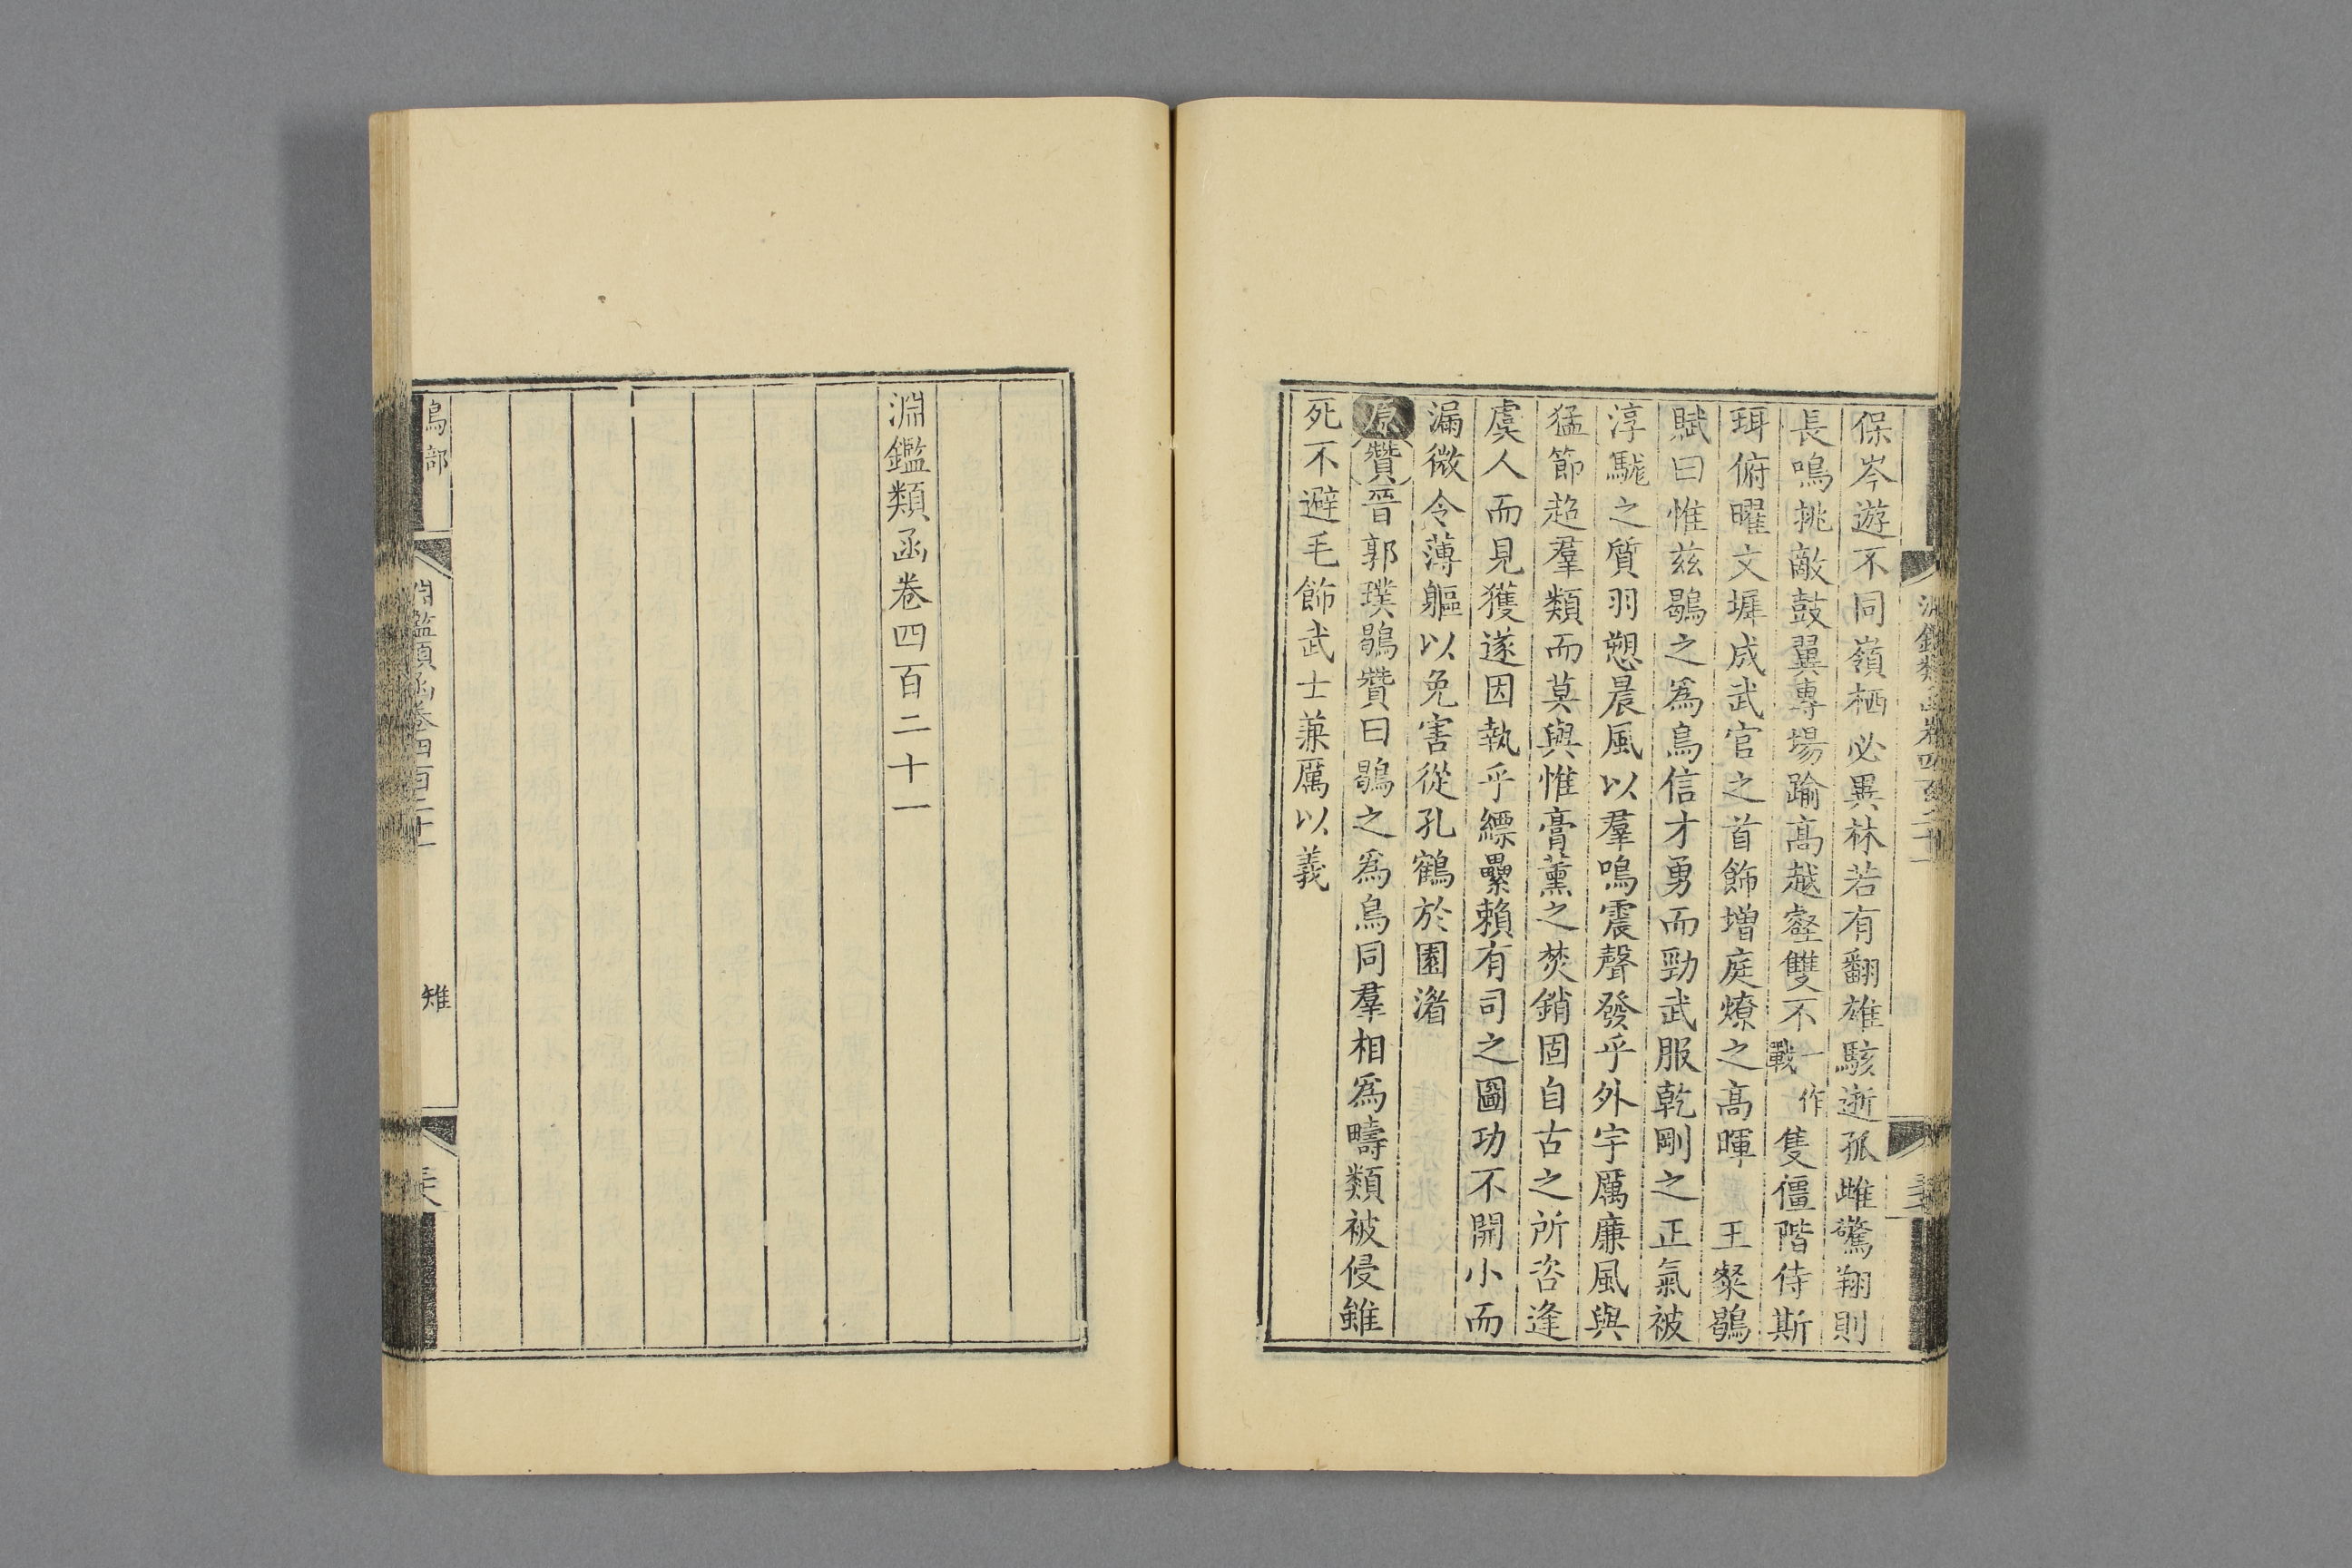 保岑遊不同嶺栖必異林若有翻雄駭逝孤雌驚翔則
長鳴挑敵鼓翼專場踰高越壑雙不一作戰隻僵階侍斯
珥俯曜文墀成武官之首飾增庭燎之高暉 王粲鶡
賦曰惟茲鶡之為鳥信才勇而勁武服乾剛之正氣被
淳駹之質羽愬晨風以羣鳴震聲發乎外宇厲廉風與
猛節超羣類而莫與惟膏薰之焚銷固自古之所咨逢
虞人而見獲遂因執乎縲纍賴有司之圖功不開小而
漏微令薄軀以免害從孔鶴於園渚
原贊晉郭璞鶡贊曰鶡之為鳥同羣相為疇類被侵雖
死不避毛飾武士兼厲以義
淵鑑類函卷四百二十一
鳥部
淵鑑類函卷四百二十一
雉